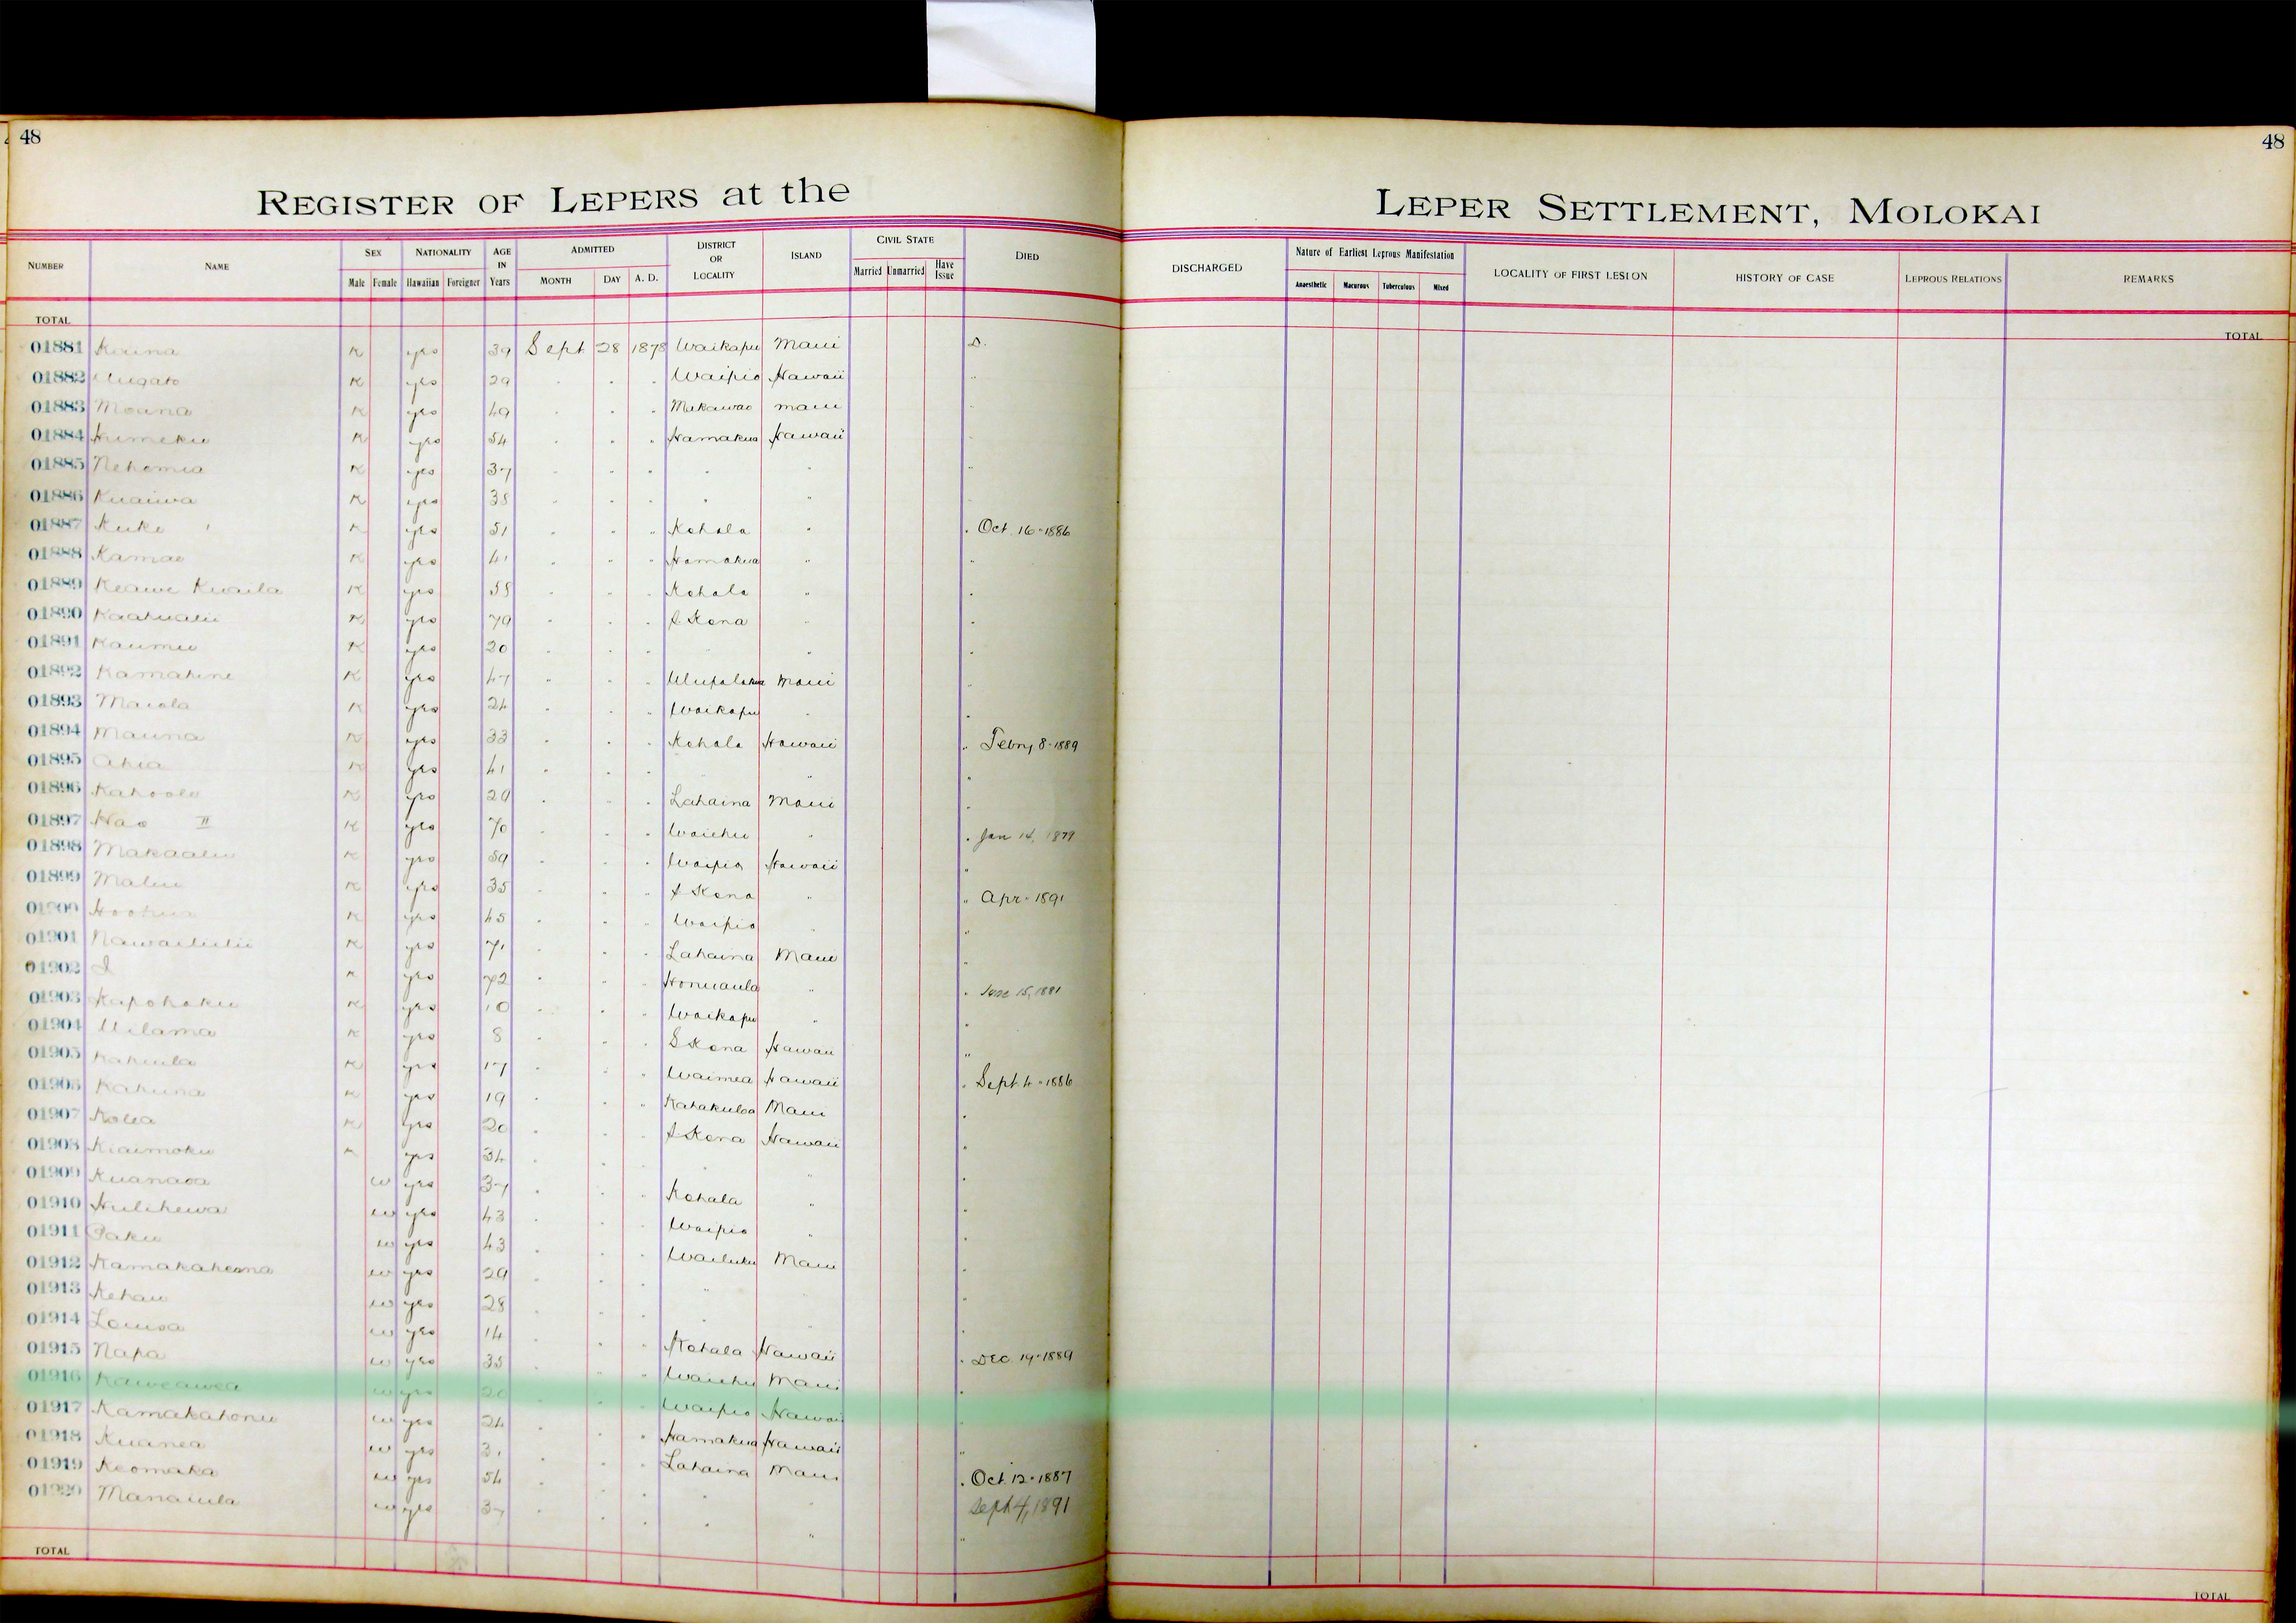 48
48
REGISTER OF LEPERS at the
LEPER SETTLEMENT, MOLOKAI
NUMBER NAME SEX NATIONALITY AGE IN Years ADMITTED DISTRICT OR LOCALITY ISLAND CIVIL STATE DIED DISCHARGED Nature of Earliest Leprous Manifestation LOCALITY OF FIRST LESION HISTORY OF CASE LEPROUS RELATIONS REMARKS
Male Female Hawaiian Foreigner MONTH DAY A. D. Married Unmarried Have Issue Anaesthetic Macurous Tuberculous Mixed
TOTAL TOTAL
01881 K yes 39 Sept 28 1878 Waikapu Maui D.
01882 K yes 29 " " " Waipio Hawaii "
01883 Moana K yes 49 " " " Makawao Maui "
01884 K yes 54 " " " Hamakua Hawaii "
01885 Nehemia K yes 37 " " " " " "
01886 Kuaiwa K yes 38 " " " " " "
01887 Kuke K yes 51 " " " Kohala " " Oct. 16 - 1886
01888 Kamae K yes 41 " " " Hamakua " "
01889 Keawe Kuaila K yes 58 " " " Kohala " "
01890 Kaahualii K yes 79 " " " S Kona " "
01891 Kaumu K yes 20 " " " " " "
01892 Kamahine K yes 47 " " " Ulupalakua Maui "
01893 Maiola K yes 24 " " " Waikapu " "
01894 Mauna K yes 33 " " " Kohala Hawaii " Febry 8 - 1889
01895 Ahia K yes 41 " " " " " "
01896 K yes 29 " " " Lahaina Maui "
01897 Hao II K yes 70 " " " Waiehu " " Jan 14, 1879
01898 Makaalu K yes 59 " " " Waipio Hawaii "
01899 Malu K yes 35 " " " S Kona " " Apr - 1891
01900 Hoohua K yes 45 " " " Waipio " "
01901 Nawailiilii K yes 71 " " " Lahaina Maui "
01902 I K yes 72 " " " Honuaula " " June 15, 1881
01903 Kapohaku K yes 10 " " " Waikapu " "
01904 Uilama K yes 8 " " " S Kona Hawaii "
01905 Kahiula K yes 17 " " " Waimea Hawaii " Sept. 4 - 1886
01906 Kahuna K yes 19 " " " Kahakuloa Maui "
01907 Kolea K yes 20 " " " S Kona Hawaii "
01908 Kiaimoku K yes 34 " " " " " "
01909 Kuanaoa w yes 37 " " " Kohala " "
01910 Hulihewa w yes 43 " " " Waipio " "
01911 Paku w yes 43 " " " Wailuku Maui "
01912 w yes 29 " " " " "
01913 Kehau w yes 28 " " " " "
01914 Louisa w yes 14 " " " Kohala Hawaii " Dec. 19 - 1889
01915 Napa w yes 35 " " " Waiehu Maui "
01916 Kaweawea w yes 20 " " " Waipio Hawaii "
01917 Kamakahonu w yes 24 " " " Hamakua Hawaii "
01918 Kuanea w yes 31 " " " Lahaina Maui " Oct 12 - 1887
01919 Keomaka w yes 54 " " " " " Sept 4, 1891
01920 Manaiula w yes 37 " " " " "
TOTAL TOTAL